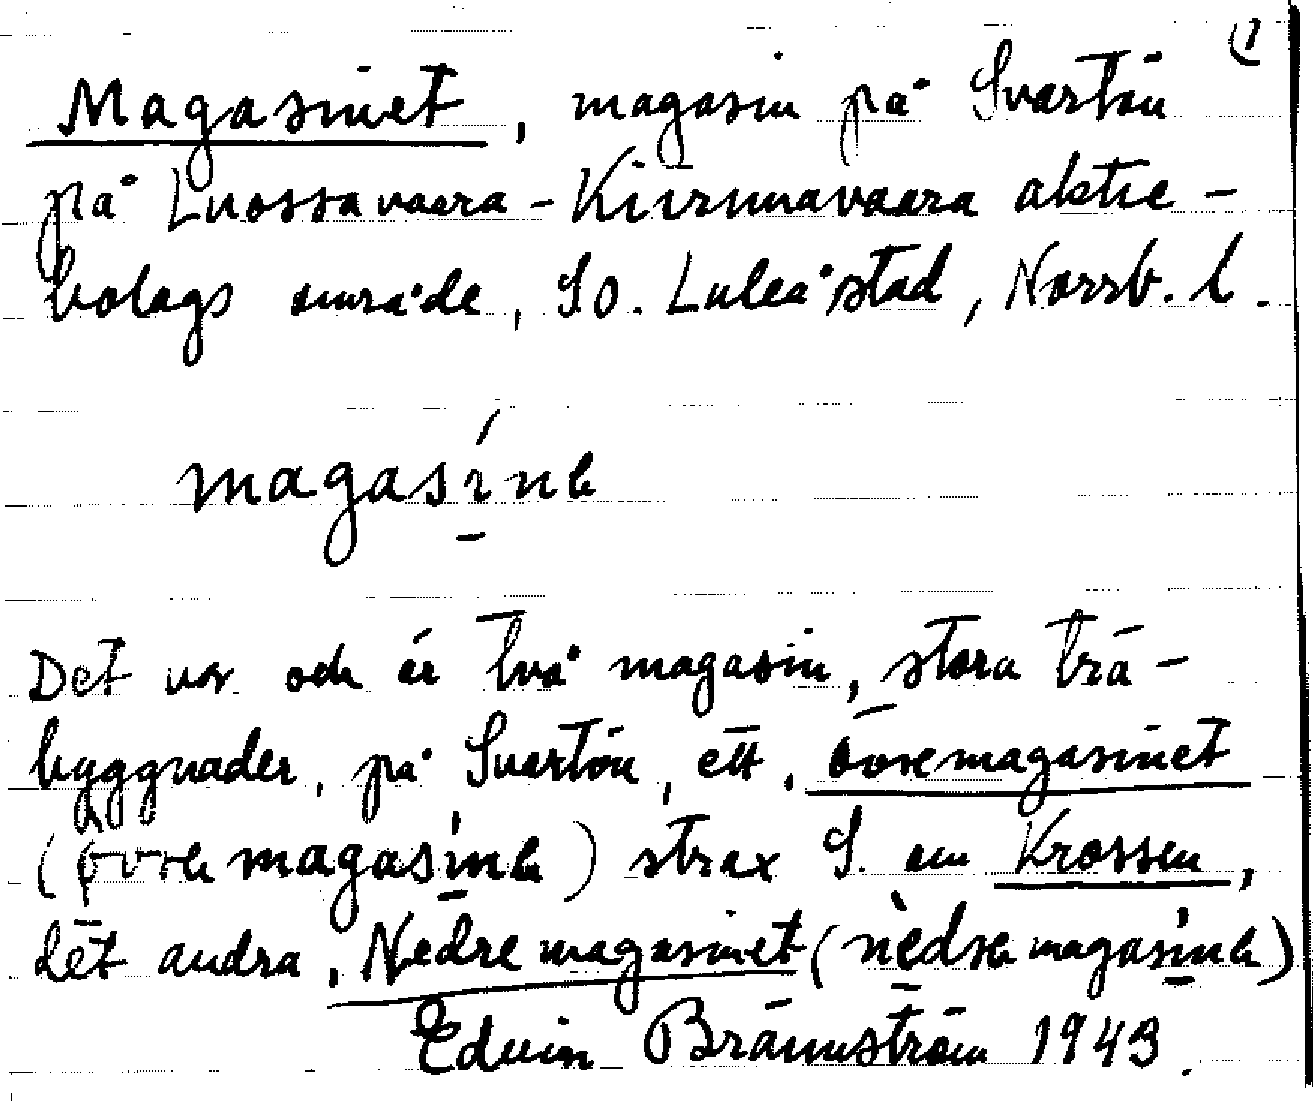 (1
Magasinet, magasin på Svartön
på Luossavaara-Kiirunavaara aktie-
bolags område, SO. Luleå stad, Norrb. l.
magasí̱nə
Det var och är två magasin, stora trä-
byggnader, på Svartön, ett, övremagasinet
(ø̀vrə magasí̱nə) strax S. om Krossen,
det andra, Nedre magasinet (nèdrə magasí̱nə)
Edvin Brännström 1943.